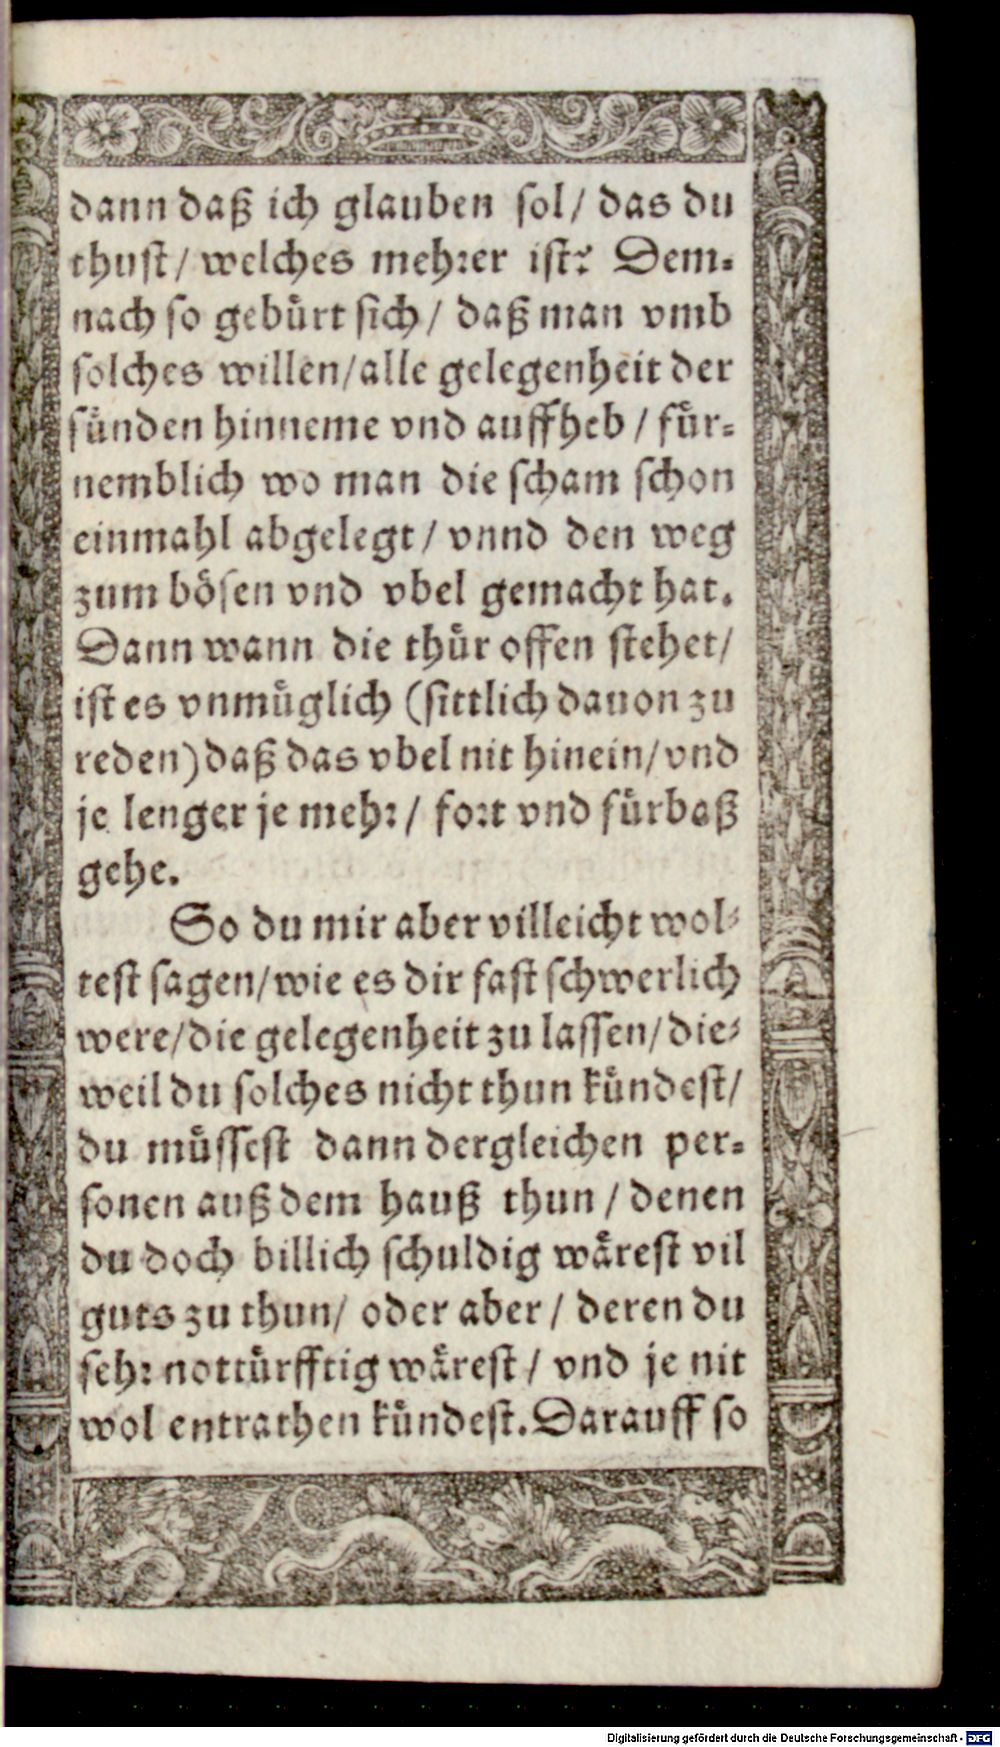 dann daß ich glauben sol/ das du
thust/ welches mehrer ist? Dem-
nach so gebürt sich/ daß man vmb
solches willen/ alle gelegenheit der
sünden hinneme vnd auffheb/ für-
nemblich wo man die scham schon
einmahl abgelegt/ vnnd den weg
zum bösen vnd vbel gemacht hat.
Dann wann die thür offen stehet/
ist es vnmüglich (sittlich dauon zu
reden) daß das vbel nit hinein/ vnd
je lenger je mehr/ fort vnd fürbaß
gehe.
So du mir aber villeicht wol-
test sagen/ wie es dir fast schwerlich
were/ die gelegenheit zu lassen/ die-
weil du solches nicht thun kündest/
du müssest dann dergleichen per-
sonen auß dem hauß thun/ denen
du doch billich schuldig wärest vil
guts zu thun/ oder aber/ deren du
sehr nottürfftig wärest/ vnd je nit
wol entrathen kündest. Darauff so
Digitalisierung gefördert durch die Deutsche Forschungsgemeinschaft - DFG